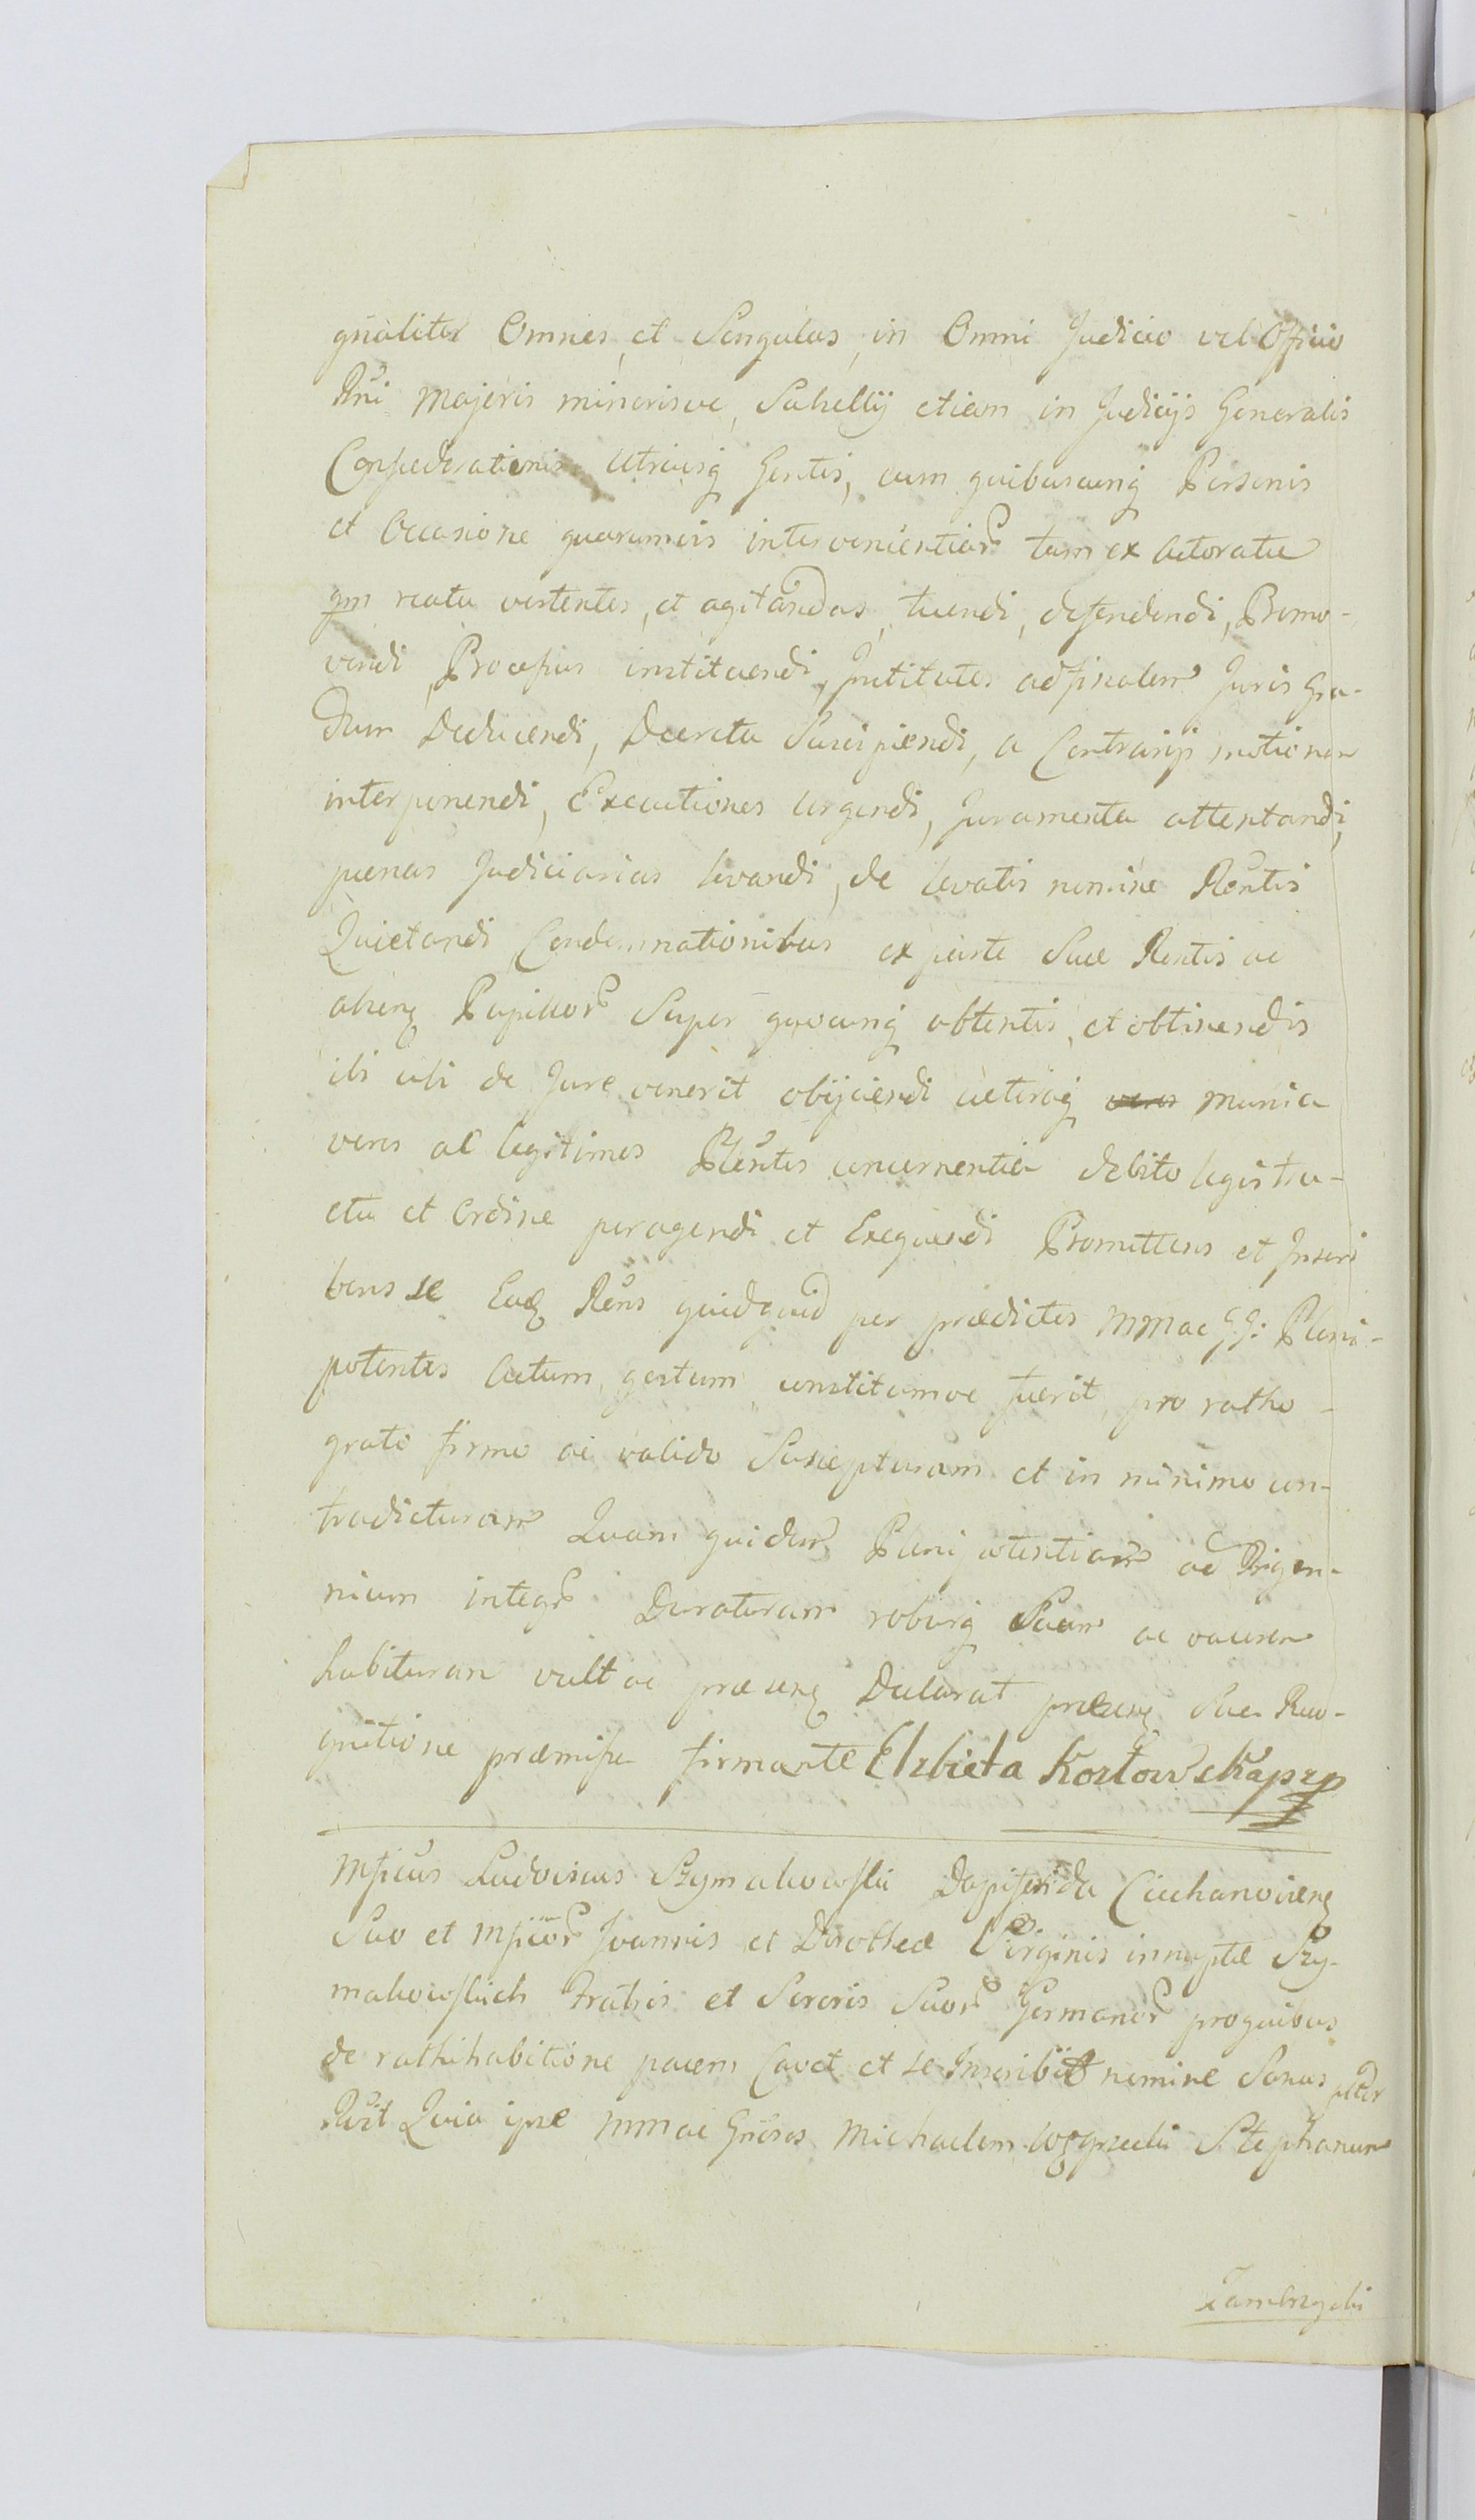 gnaliter Omnes, et Singulas, in Omni Judicio vel Officio
Rni Majoris minorisve, Subselly etiam in Judicijs Generalis
Confederationis Utriusq Gentis, cum quibuscunq Personis
et Occasione quarumvis intervenientiar tam ex Actoratu
qm reatu vertentes, et agitandas, tuendi, defendendi, Promo-
vendi, Processus instituendi, Jntitutos ad finalem Juris Gra-
dum Deducendi, Decreta Suscipiendi, a Contrarijs motionem
interponendi, Executiones Urgendi, Juramenta attentandi,
pænas Judiciarias levandi, de levatis nomine Rentis
Quietandi Condemnationibus ex parte Suæ Rentis ac
Pupillor Super quocunq obtentis, et obtinendis
ibi ubi de Jure venerit obijciendi cæteraq munia
veros ac legitimos Plentes concernentia debito legis tra-
ctu et Ordine peragendi et Exequendi Promittens et Jnscri
bens se Eadq Rens quidquid per prædictos MMac GG: Pleni-
potentes Actum, gestum, constitumve fuerit, pro ratho
grato firmo ac valido Suscepturam et in minimo con-
tradicturam Quam quidem Plenipotentiam ad
nium integr Duraturam roburq Suum ac vaurem
habituram vult ac præsenq Declarat præsenq Sua Reco-
gnitione præmissa firmante Elzbieta Kozłowska prp
Mficus Ludovicus Szymakowski Dapiferida Ciechanoviens
Suo et Mficor Joannis et Dorotheæ Virginis innuptæ Szy-
makowskich Fratris et Sororis Suor Germanor pro quibus
de rathihabitione pacem Cavet et se Jnscribit nomine Sanus
Rvit Quia ipse MMac Gnosos Michaelem Stephanum
Zambrzycki